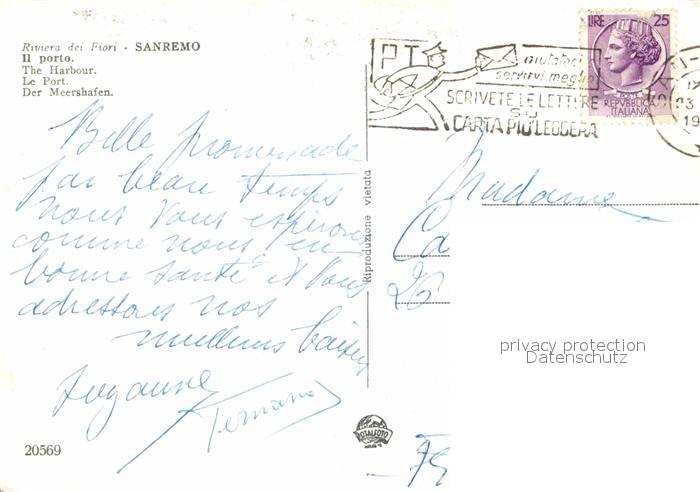 Riviera dei Fiori - SANREMO
Il porto.
The Harbour.
Le Port.
Der Meershafen.
LIRE 25
REPVBBLICA
ITALIANA
PT
aiutateci a
servirvi meglio
SCRIVETE LE LETTERE
SU
CARTA PIÙ LEGGERA
19
Belle promenade
par beau temps
nous vous espérons
comme nous en
bonne santé et vous
adressons nos
meilleurs baisers
Suzanne
Fernand
Madame
Ca
26
75
Riproduzione vietata
privacy protection
Datenschutz
20569